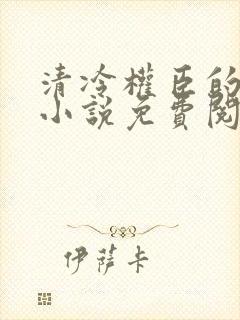 清冷權臣的
小說免費閱
伊薩卡